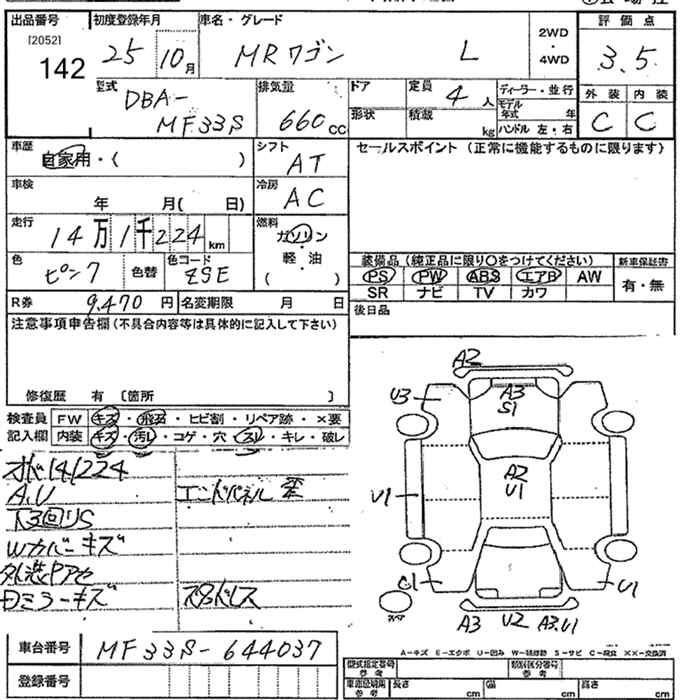 出品番号 初度登録年月 車名・グレード 2WD・4WD 評価点
[2052] 142 25 10月 MRワゴン L 3.5
型式 DBA-MF33S 排気量 660cc ドア 形状 定員 4人 積載 kg ディーラー・並行 モデル年式 年 ハンドル 左・右 外装 C 内装 C
車歴 自家用・( ) シフト AT セールスポイント(正常に機能するものに限ります)
車検 年 月( 日) 冷房 AC
走行 14万1千224km 燃料 ガソリン・軽・油 ( )
色 ピンク 色替 色コード ZSE 装備品(純正品に限り○をつけてください) 新車保証書
PS PW ABS エアB AW 有・無
SR ナビ TV カワ
R券 9,470円 名変期限 月 日 後日品
注意事項申告欄(不具合内容等は具体的に記入して下さい)
修復歴 有 〔箇所 〕
検査員 FW キズ・飛石・ヒビ割・リペア跡・×要
記入欄 内装 キズ・汚レ・コゲ・穴・スレ・キレ・破レ
オド141224
A.U エンドパネル
下回りS
Wカバーキズ
外装
ミラーキズ スタッドレス
A2
U3 A3 S1
A2 U1
U1
U1 U1
A3 U2 A3.U1
スペア
A-キズ E-エクボ U-凹み W-補修跡 S-サビ C-腐食 ××-交換済
車台番号 MF33S-644037
登録番号
型式指定番号 参考 類別区分番号 参考
車庫証明用 参考 長さ cm 幅 cm 高さ cm